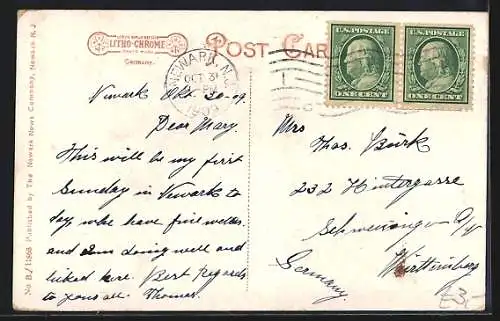 LITHO-CHROME
Germany.
POST CARD
NEWARK, N.J.
OCT 31
1909
U.S. POSTAGE
ONE CENT
U.S. POSTAGE
ONE CENT
No. B/11865 Published by The Newark News Company, Newark N.J.
Newark Okt 30 - 09.
Dear Mary.
This will be my first
Sunday in Newark to
day, we have fine
and am doing well and
liked here. Best Regards
to yours all. Thomas.
Mrs
Thos. Bürk
232 Hintergasse
Schwenningen a/N
Württemberg
Germany.
E3,-